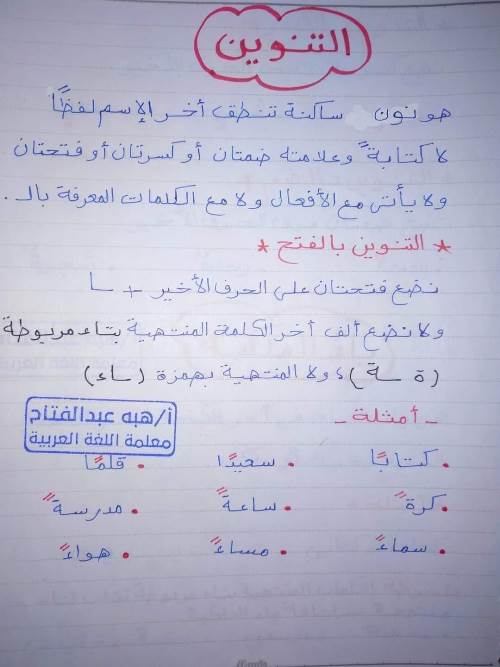 التنوين
هو نون ساكنة تنطق أخر الإسم لفظًا
لا كتابةً وعلامته ضمتان أو كسرتان أو فتحتان
ولا يأتى مع الأفعال ولا مع الكلمات المعرفة بالـ.
* التنوين بالفتح *
نضع فتحتان على الحرف الأخير + ـا
ولا نضع ألف أخر الكلمة المنتهية بتاء مربوطة
(ة ـة)، ولا المنتهية بهمزة (ـاء)
- أمثلة -
أ/هبه عبدالفتاح
معلمة اللغة العربية
• كتابًا • سعيدًا • قلمًا
• كرةً • ساعةً • مدرسةً
• سماءً • مساءً • هواءً